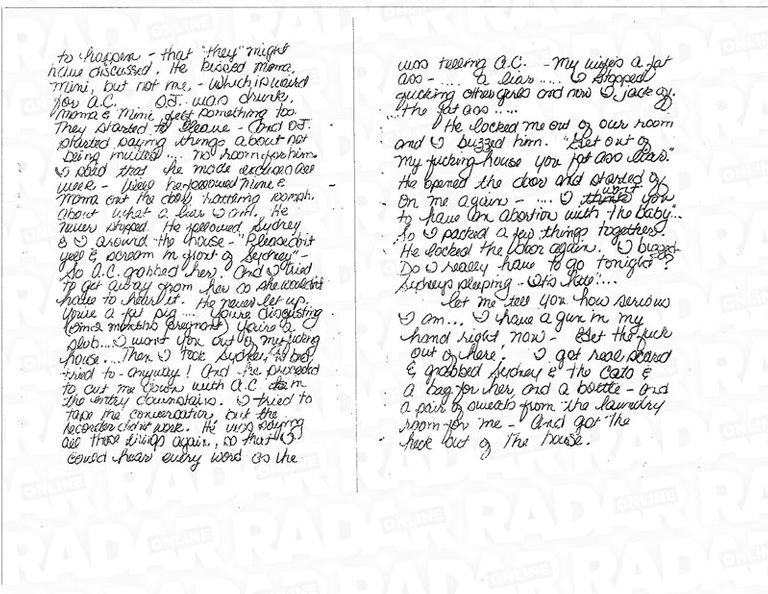 to happen - that "they" might
have discussed. He kissed Mama,
Mini, but not me, - which is weird
for A.C. O.J. was drunk.
Mama & Mini felt something too.
They started to leave - and O.J.
started saying things about not
being invited .... no room for him
I said that he made excuses all
week - Well he followed Mini &
Mama out the door, hattering oomph.
about what a liar I am. He
never stopped. He followed Sydney
& I around the house - "Please don't
yell & scream in front of Sydney" -
So A.C. grabbed her. And I tried
to get away from her so she wouldn't
have to hear it. He never let up.
You're a fat pig .... You're disgusting
(2 months pregnant) You're a
slob.... I want you out of my fucking
house.... Then I took Sydney to bed,
tried to - anyway! And he proceeded
to cut me down with A.C. in
the entry downstairs. I tried to
tape the conversation, but the
recorder didn't work. He was saying
all those things again, so that I
could hear every word as he
was telling A.C. - My wife's a fat
ass - .... a liar ..... I stopped
fucking other girls and now I jack off.
"The fat ass .....
He locked me out of our room
and I buzzed him. "Get out of
my fucking house you fat ass liar."
He opened the door and started off
on me again - .... I want you
to have an abortion with the baby"...
So I packed a few things together.
He locked the door again. I buzzed -
Do I really have to go tonight?
Sydney's sleeping - it's late!....
Let me tell you how serious
I am... I have a gun in my
hand right now - Get the fuck
out of here! I got real scared
& grabbed Sydney & the cats &
a bag for her, and a bottle - and
a pair of sweats from the laundry
room for me - And got the
heck out of the house.
RADAR
ONLINE